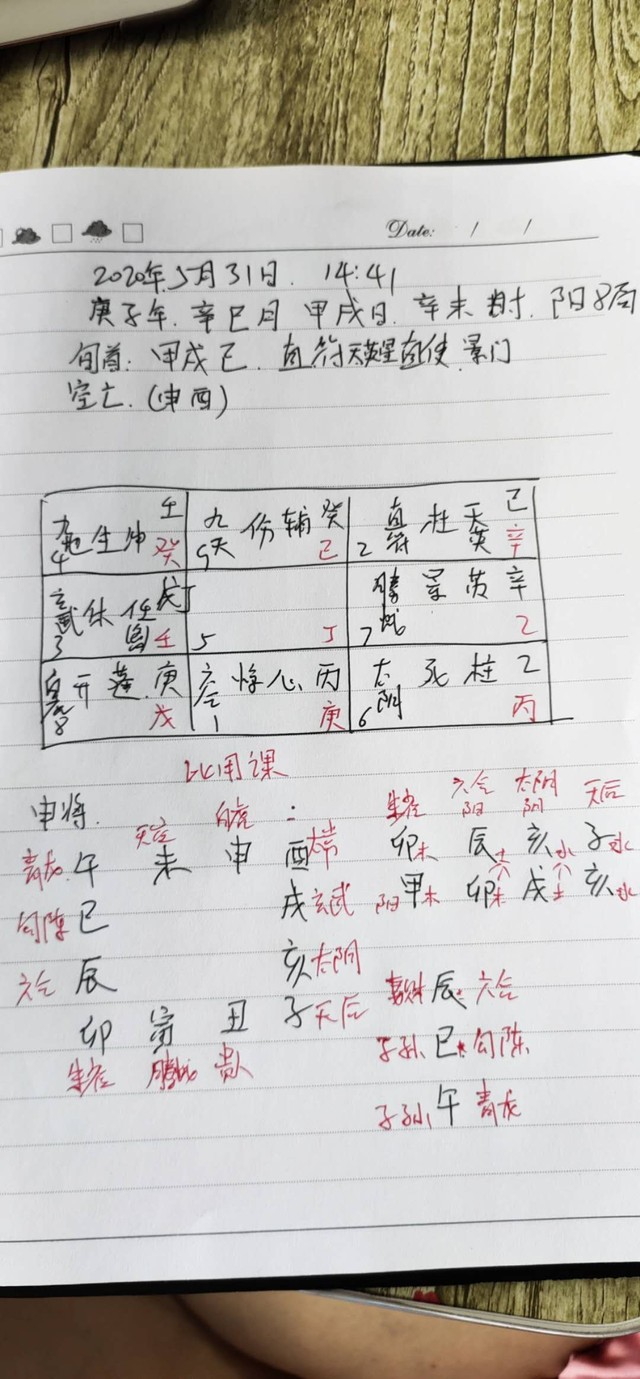 Date: / /
2020年5月31日. 14:41
庚子年. 辛巳月 甲戌日. 辛未时. 阳8局
旬首: 甲戌己. 直符天英星直使.景门
空亡. (申酉)
九地 生 冲 壬 癸 4
九天 伤 辅 癸 己 9
直符 杜 天英 己 辛 2
玄武 休 任 戊 壬 3
5 丁
螣蛇 景 英 辛 乙 7
开 蓬 庚 戊 8
六合 惊 心 丙 庚 1
太阴 死 柱 乙 丙 6
比用课
申将.
天空 白虎 六合 太阴 天后
阳 阴
青龙 午 未 申 酉 太常 卯木 辰土 亥水 子水
勾陈 巳 戌 玄武 阳 甲木 卯木 戌土 亥水
六合 辰 亥 太阴
卯 寅 丑 子 天后 辰 六合
螣蛇 贵人 子孙 巳 勾陈
子孙 午 青龙